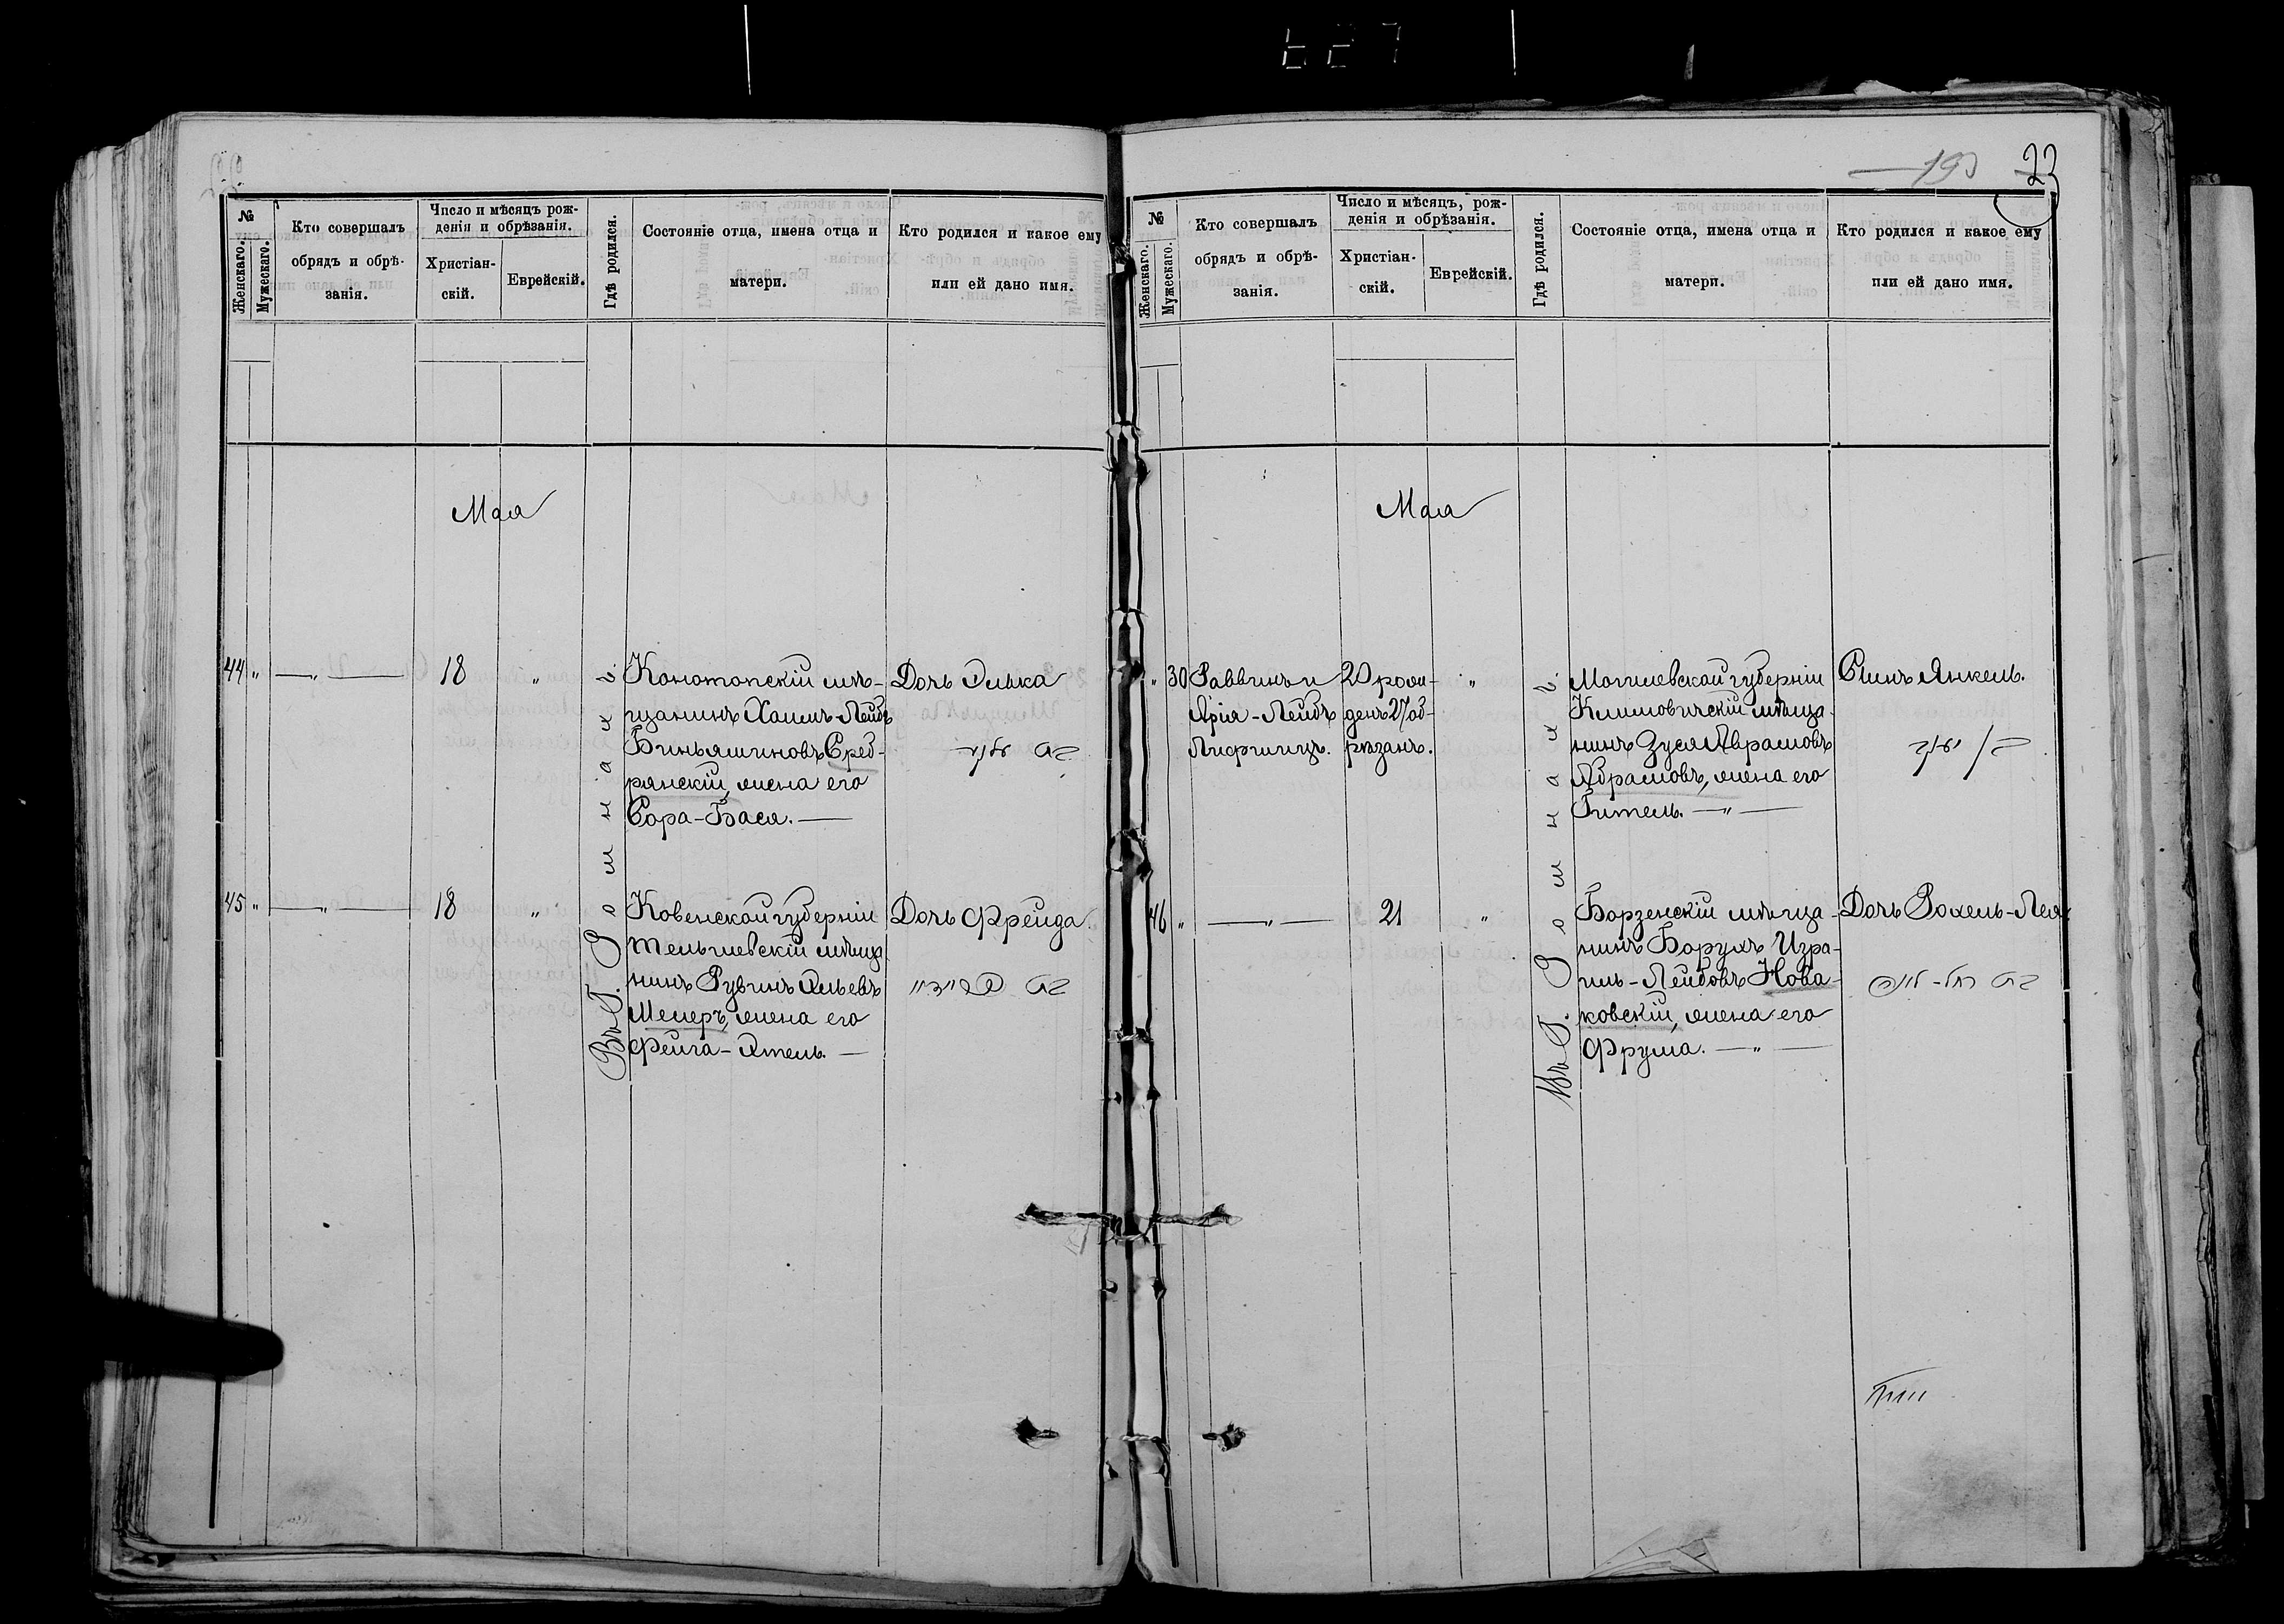 193
23
№
Женскаго.
Мужескаго.
Кто совершалъ
обрядъ и обрѣ-
занія.
Число и мѣсяцъ рож-
денія и обрѣзанія.
Христіан-
скій.
Еврейскій.
Гдѣ родился.
Состояніе отца, имена отца и
матери.
Кто родился и какое ему
или ей дано имя.
Мая
44 " — " — 18 "
Конотопскій мѣ-
щанинъ Хаимъ-Лейбъ
Биньяминовъ Сред-
рянскій, жена его
Сора-Бася. —
Дочь Элька
45 " — " — 18 "
Ковенской губерніи
Тельшевскій мѣща
нинъ Рувинъ Яльевъ
Мееръ, жена его
Фейга-Этель. —
Дочь Фрейда.
Въ Г. Ромнахъ.
№
Женскаго.
Мужескаго.
Кто совершалъ
обрядъ и обрѣ-
занія.
Число и мѣсяцъ, рож-
денія и обрѣзанія.
Христіан-
скій.
Еврейскій.
Гдѣ родился.
Состояніе отца, имена отца и
матери.
Кто родился и какое ему
или ей дано имя.
Мая
" 30
Раввинъ и
Арія-Лейбъ
Лифшицъ.
20 рож-
денъ 27 об-
рѣзанъ.
"
Могилевской губерніи
Климовичскій мѣща-
нинъ Зуся Аврамовъ
Абрамовъ, жена его
Гитель. — " —
Сынъ Янкель.
46 " — " — 21 "
Борзенскій мѣща-
нинъ Борухъ Изра-
иль-Лейбовъ Нова-
ковскій, жена его
Фрума. — " —
Дочь Рохель-Лея
בת רחל-
Въ Г. Ромнахъ.